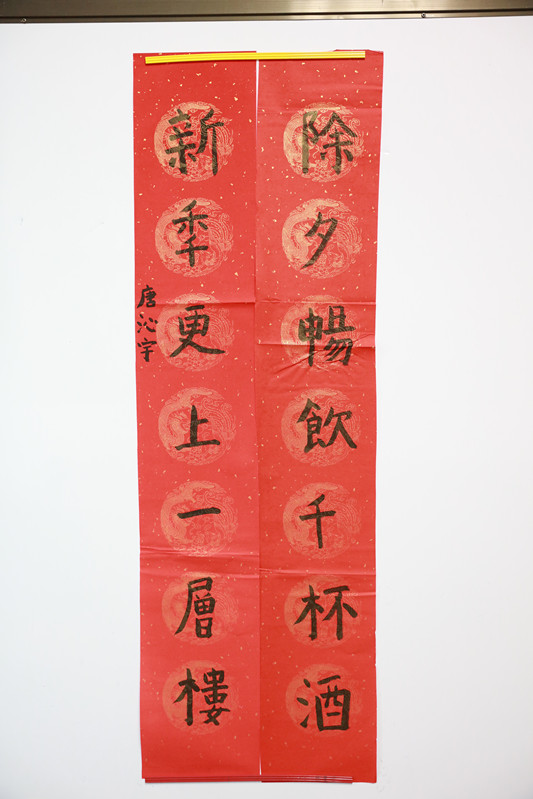 除夕暢飲千杯酒
新季更上一層樓
唐沁宇